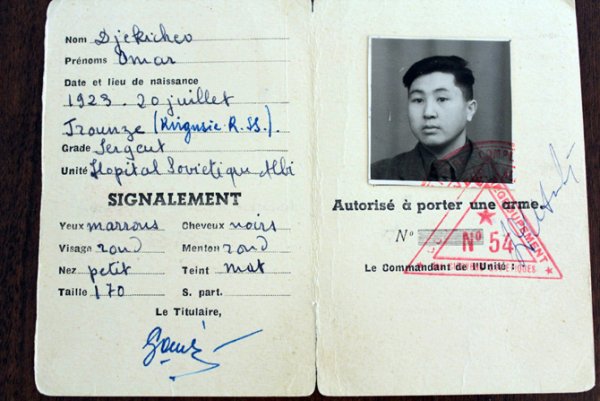 Nom Djekichev
Prénoms Omar
Date et lieu de naissance
1923. 20 juillet
Frounze (Kirgusie R. SS.).
Grade Sergent
Unité Hopital Soviétique Albi
SIGNALEMENT
Yeux marrons Cheveux noirs
Visage rond Menton rond
Nez petit Teint mat
Taille 170 S. part.
Le Titulaire,
Autorisé à porter une arme.
N°
GROUPEMENT
N° 54
Le Commandant de l'Unité :